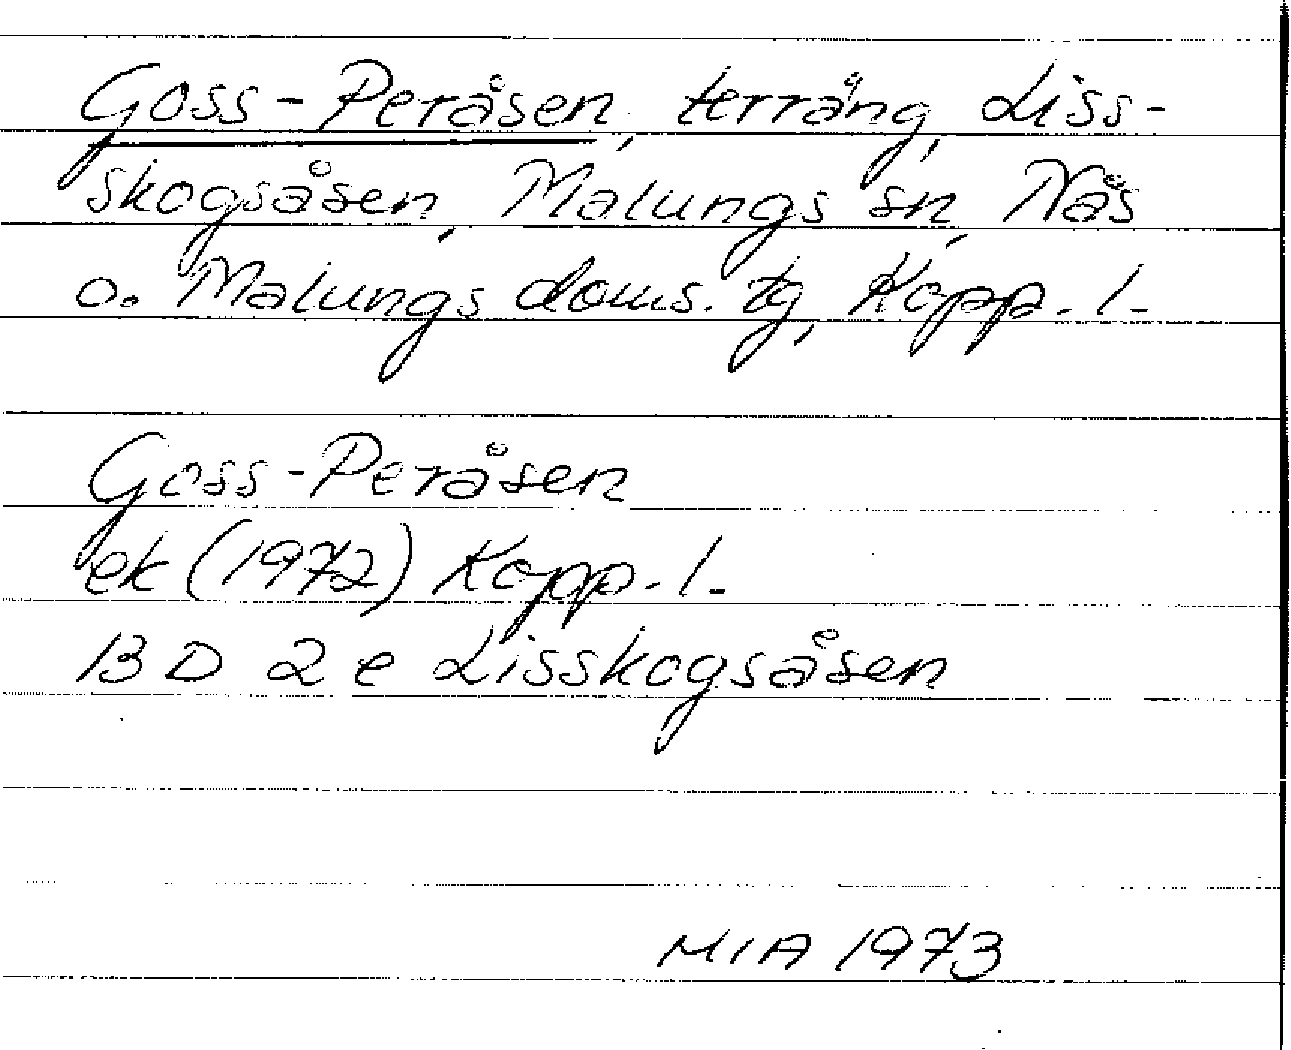 Goss-Peråsen, terräng, Liss-
skogsåsen, Malungs sn, Näs
o. Malungs doms. tg, Kopp. l.
Goss-Peråsen
ek (1972) Kopp. l.
13 D 2 e Lisskogsåsen
MIA 1973